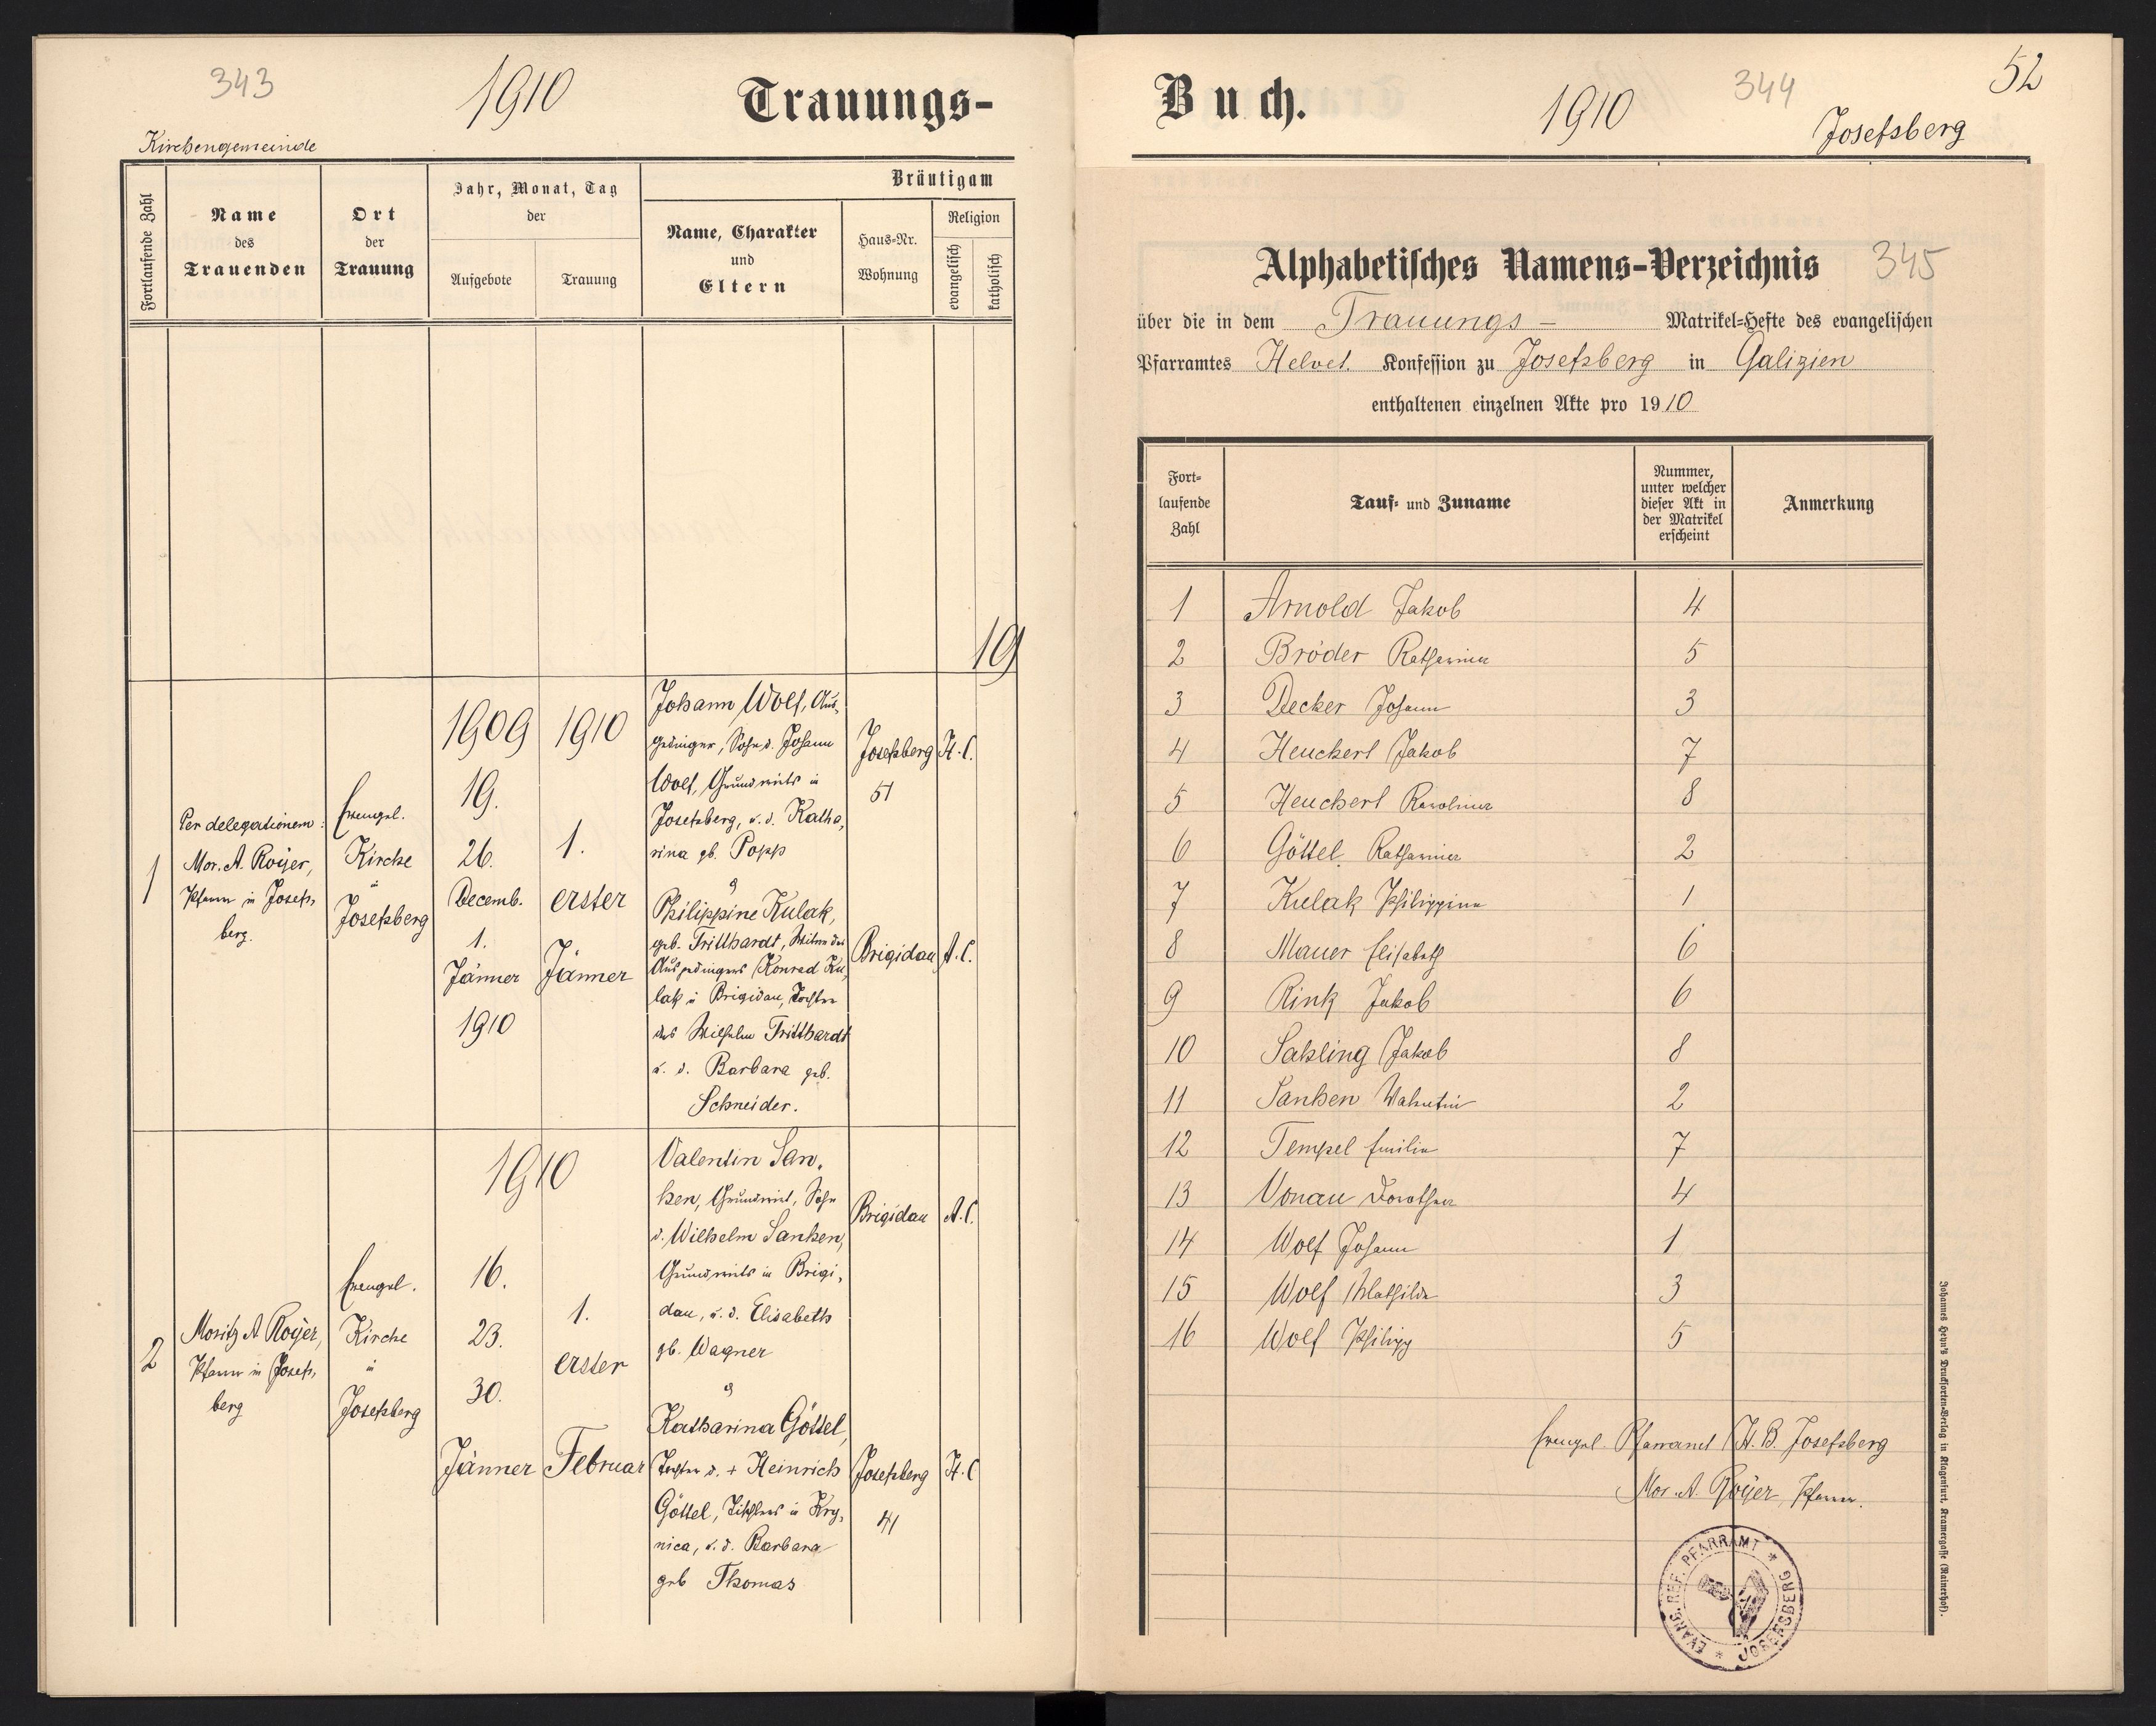 343
1910
Trauungs-
Kirchengemeinde
Fortlaufende Zahl
Name
des
Trauenden
Ort
der
Trauung
Jahr, Monat, Tag
der
Aufgebote
Trauung
Bräutigam
Name, Charakter
und
Eltern
Haus-Nr.
Wohnung
Religion
evangelisch
katholisch
19
1
Per delegationem:
Mor. A. Royer,
Pfarrer in Josefs-
berg.
Evangel.
Kirche
in
Josefsberg
1909
19.
26.
Decemb.
1.
Jänner
1910
1910
1.
erster
Jänner
Johann Wolf, Aus-
gedinger, Sohn d. Johann
Wolf, Grundwirts in
Josefsberg, u. d. Katha-
rina gb. Popp
&
Philippine Kulak,
geb. Tritthardt, Witwe des
Ausgedingers Konrad Ku-
lak in Brigidau, Tochter
des Wilhelm Tritthardt
u. d. Barbara geb.
Schneider.
Josefsberg
51
H. C.
Brigidau
A. C.
2
Moritz A Royer,
Pfarrer in Josefs-
berg
Evangel.
Kirche
in
Josefsberg
1910
16.
23.
30.
Jänner
1.
erster
Februar
Valentin San-
ken, Grundwirt, Sohn
d. Wilhelm Sanken,
Grundwirts in Brigi-
dau, u. d. Elisabeth
gb. Wagner
&
Katharina Göttel,
Tochter d. + Heinrich
Göttel, Tischlers in Kry-
nica, u. d. Barbara
geb Thomas
Brigidau
A. C.
Josefsberg
41
H. C
Buch.
1910
344
52
Josefsberg
Alphabetisches Namens-Verzeichnis
345
über die in dem Trauungs- Matrikel-Hefte des evangelischen
Pfarramtes Helvet. Konfession zu Josefsberg in Galizien
enthaltenen einzelnen Akte pro 1910
Fort-
laufende
Zahl
Tauf- und Zuname
Nummer,
unter welcher
dieser Akt in
der Matrikel
erscheint
Anmerkung
1 Arnold Jakob 4
2 Bröder Katharina 5
3 Decker Johann 3
4 Heuchert Jakob 7
5 Heuchert Karolina 8
6 Göttel Katharina 2
7 Kulak Philippine 1
8 Mauer Elisabeth 6
9 Rink Jakob 6
10 Sahling Jakob 8
11 Sanken Valentin 2
12 Tempel Emilie 7
13 Vonau Dorothea 4
14 Wolf Johann 1
15 Wolf Mathilde 3
16 Wolf Philipp 5
Evangel. Pfarramt H. B. Josefsberg
Mor. A. Royer Pfarrer.
EVANG. REF. PFARRAMT * JOSEFSBERG *
Johannes Heyn's Drucksorten-Verlag in Klagenfurt, Kramergasse (Rainerhof).